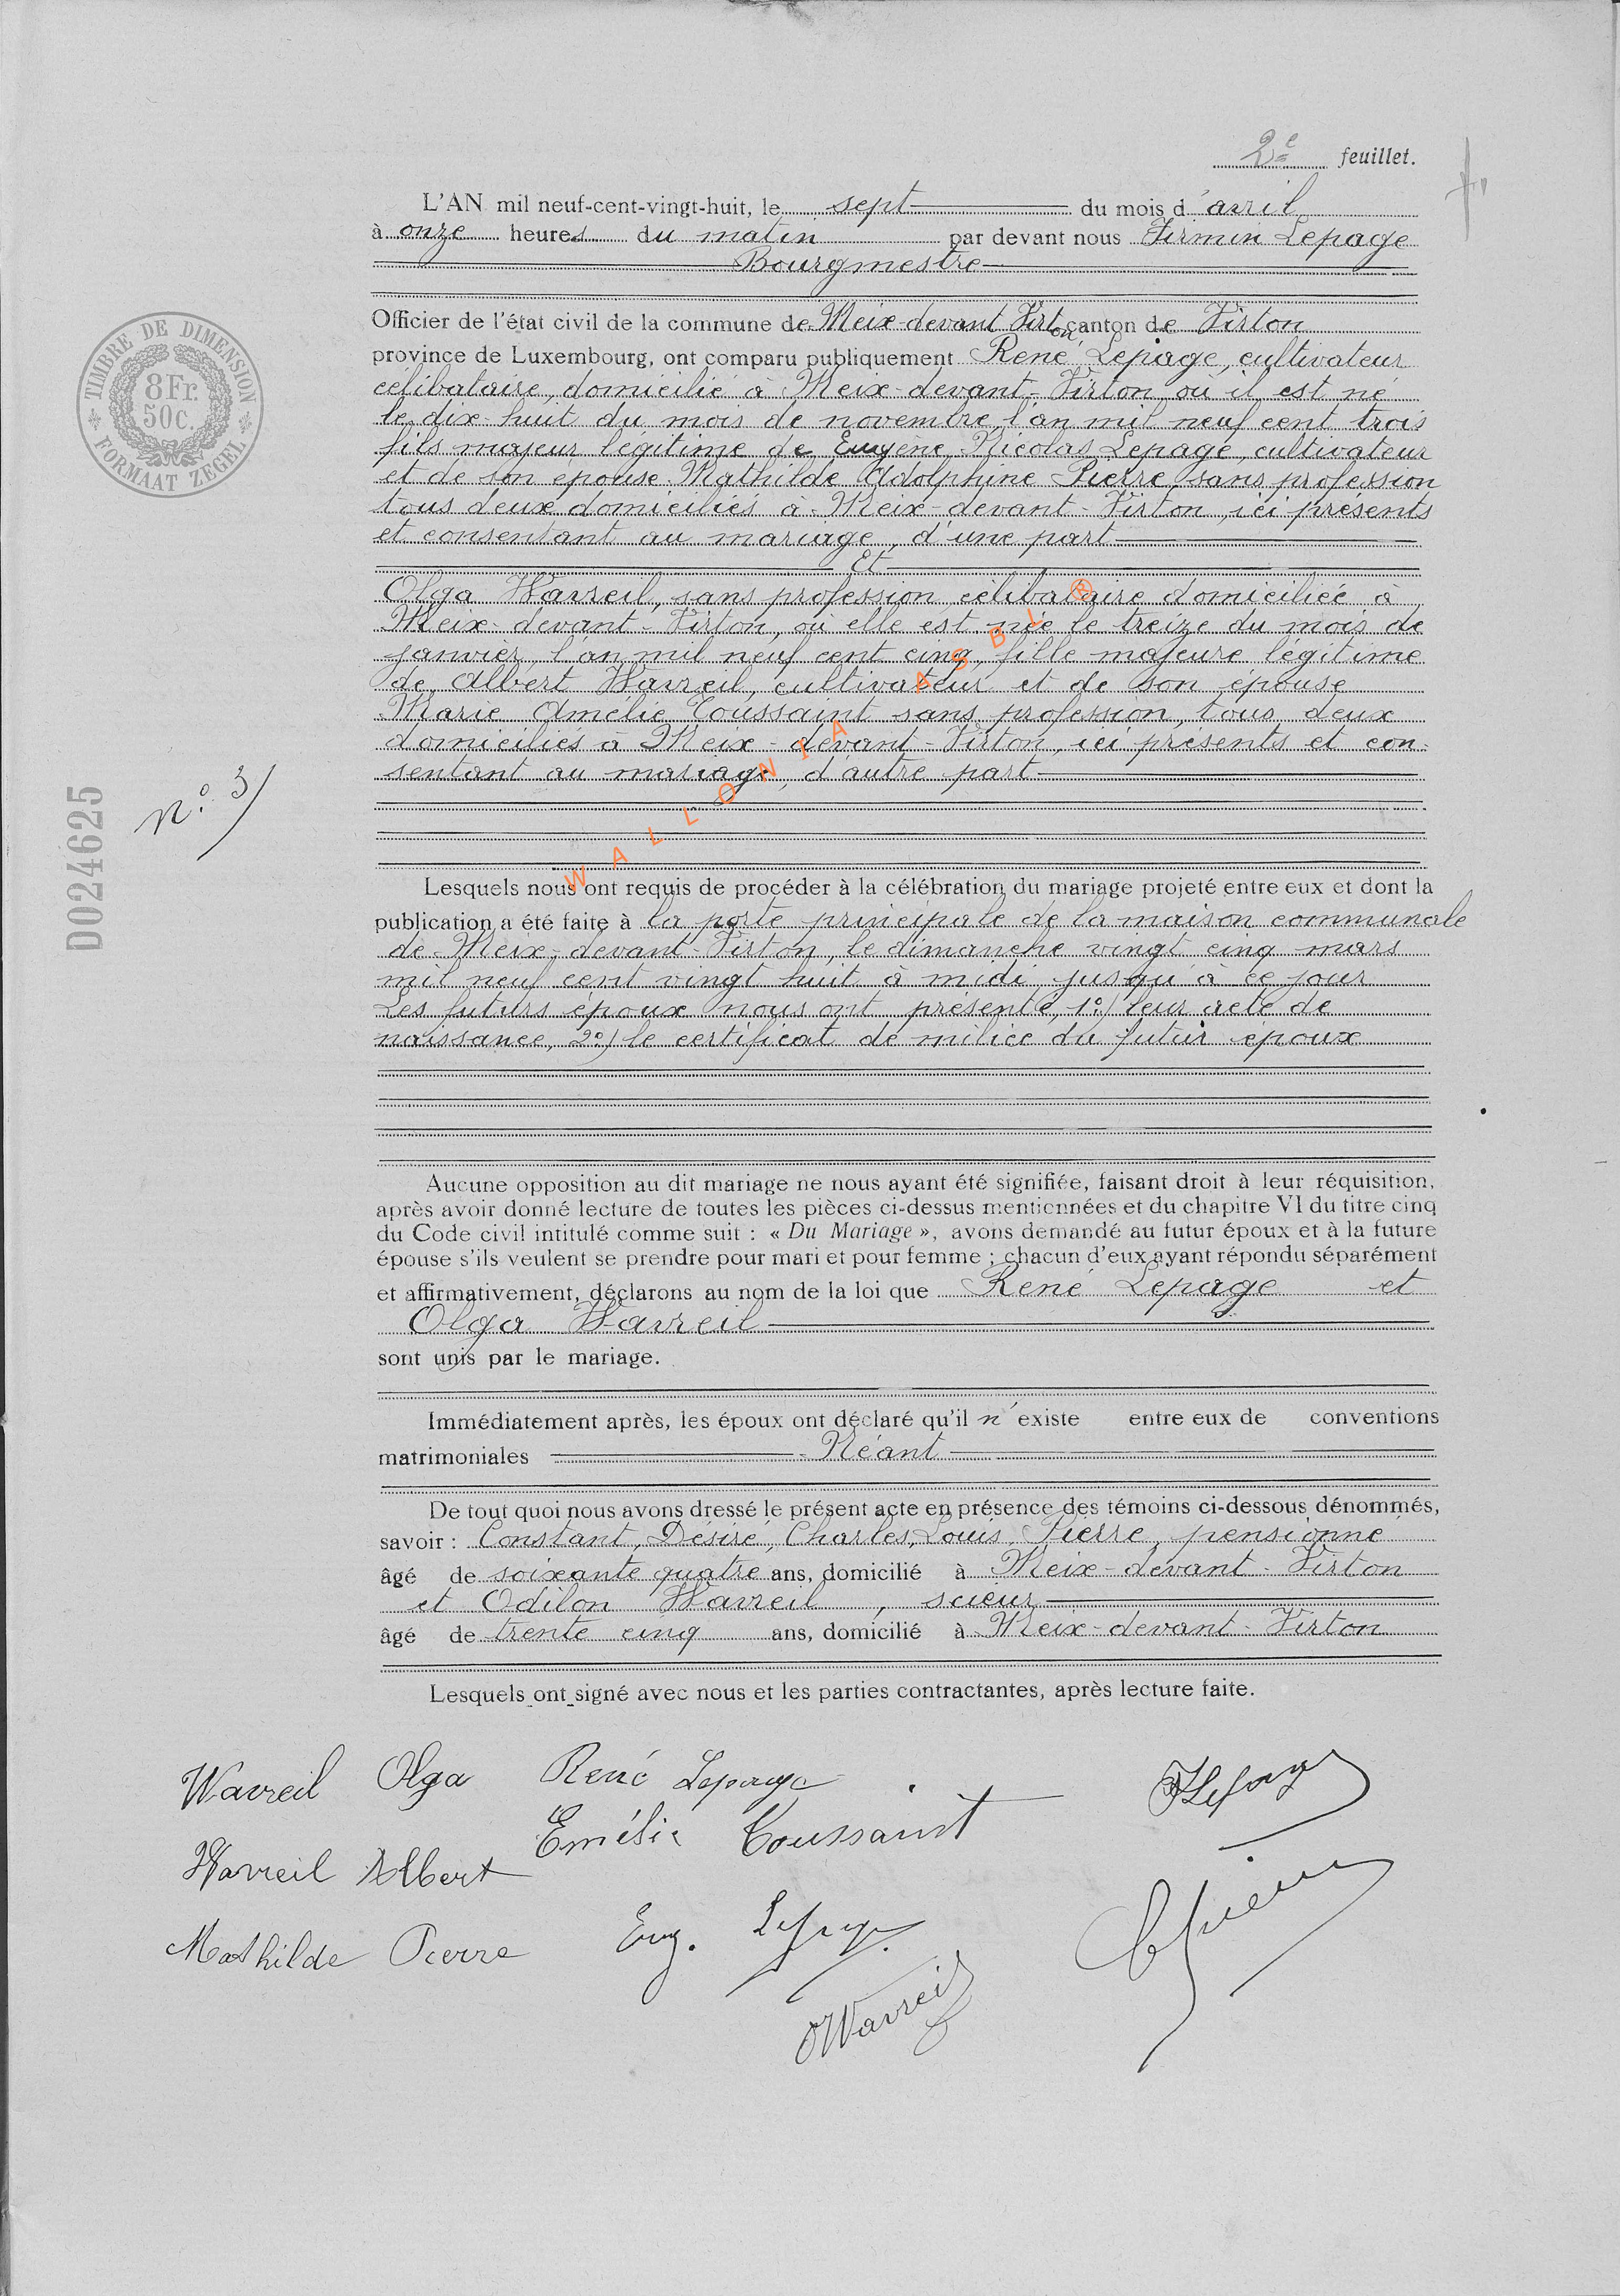 2e feuillet.
L'AN mil neuf-cent-vingt-huit, le sept du mois d'avril
à onze heures du matin par devant nous Firmin Lepage
Bourgmestre
Officier de l'état civil de la commune de Meix-devant Virton canton de Virton
province de Luxembourg, ont comparu publiquement René Lepage, cultivateur
célibataire, domicilié à Meix-devant-Virton où il est né
le dix-huit du mois de novembre l'an mil neuf cent trois
fils majeur légitime de Eugène Nicolas Lepage, cultivateur
et de son épouse Mathilde Adolphine Pierre, sans profession
tous deux domiciliés à Meix-devant-Virton, ici présents
et consentant au mariage, d'une part
Et
Olga Wavreil, sans profession, célibataire domiciliée à
Meix-devant-Virton, où elle est née le treize du mois de
janvier, l'an mil neuf cent cinq, fille majeure légitime
de Albert Wavreil, cultivateur et de son épouse
Marie Amélie Toussaint sans profession, tous deux
domiciliés à Meix-devant-Virton, ici présents et con-
sentant au mariage, d'autre part
Lesquels nous ont requis de procéder à la célébration du mariage projeté entre eux et dont la
publication a été faite à la porte principale de la maison communale
de Meix-devant-Virton, le dimanche vingt cinq mars
mil neuf cent vingt huit à midi jusqu'à ce jour
Les futurs époux nous ont présenté, 1°) leur acte de
naissance, 2°) le certificat de milice du futur époux
Aucune opposition au dit mariage ne nous ayant été signifiée, faisant droit à leur réquisition,
après avoir donné lecture de toutes les pièces ci-dessus mentionnées et du chapitre VI du titre cinq
du Code civil intitulé comme suit : « Du Mariage », avons demandé au futur époux et à la future
épouse s'ils veulent se prendre pour mari et pour femme ; chacun d'eux ayant répondu séparément
et affirmativement, déclarons au nom de la loi que René Lepage et
Olga Wavreil
sont unis par le mariage.
Immédiatement après, les époux ont déclaré qu'il n'existe entre eux de conventions
matrimoniales Néant
De tout quoi nous avons dressé le présent acte en présence des témoins ci-dessous dénommés,
savoir : Constant, Désiré, Charles, Louis, Pierre, pensionné
âgé de soixante quatre ans, domicilié à Meix-devant-Virton
et Odilon Wavreil, scieur
âgé de trente cinq ans, domicilié à Meix-devant-Virton
Lesquels ont signé avec nous et les parties contractantes, après lecture faite.
Wavreil Olga René Lepage FLepage
Emélie Toussaint
Wavreil Albert
Mathilde Pierre Eug. Lepage
OWavreil
TIMBRE DE DIMENSION
8Fr.
50c.
FORMAAT ZEGEL
n° 3
D024625
WALLONIA ASBL ®